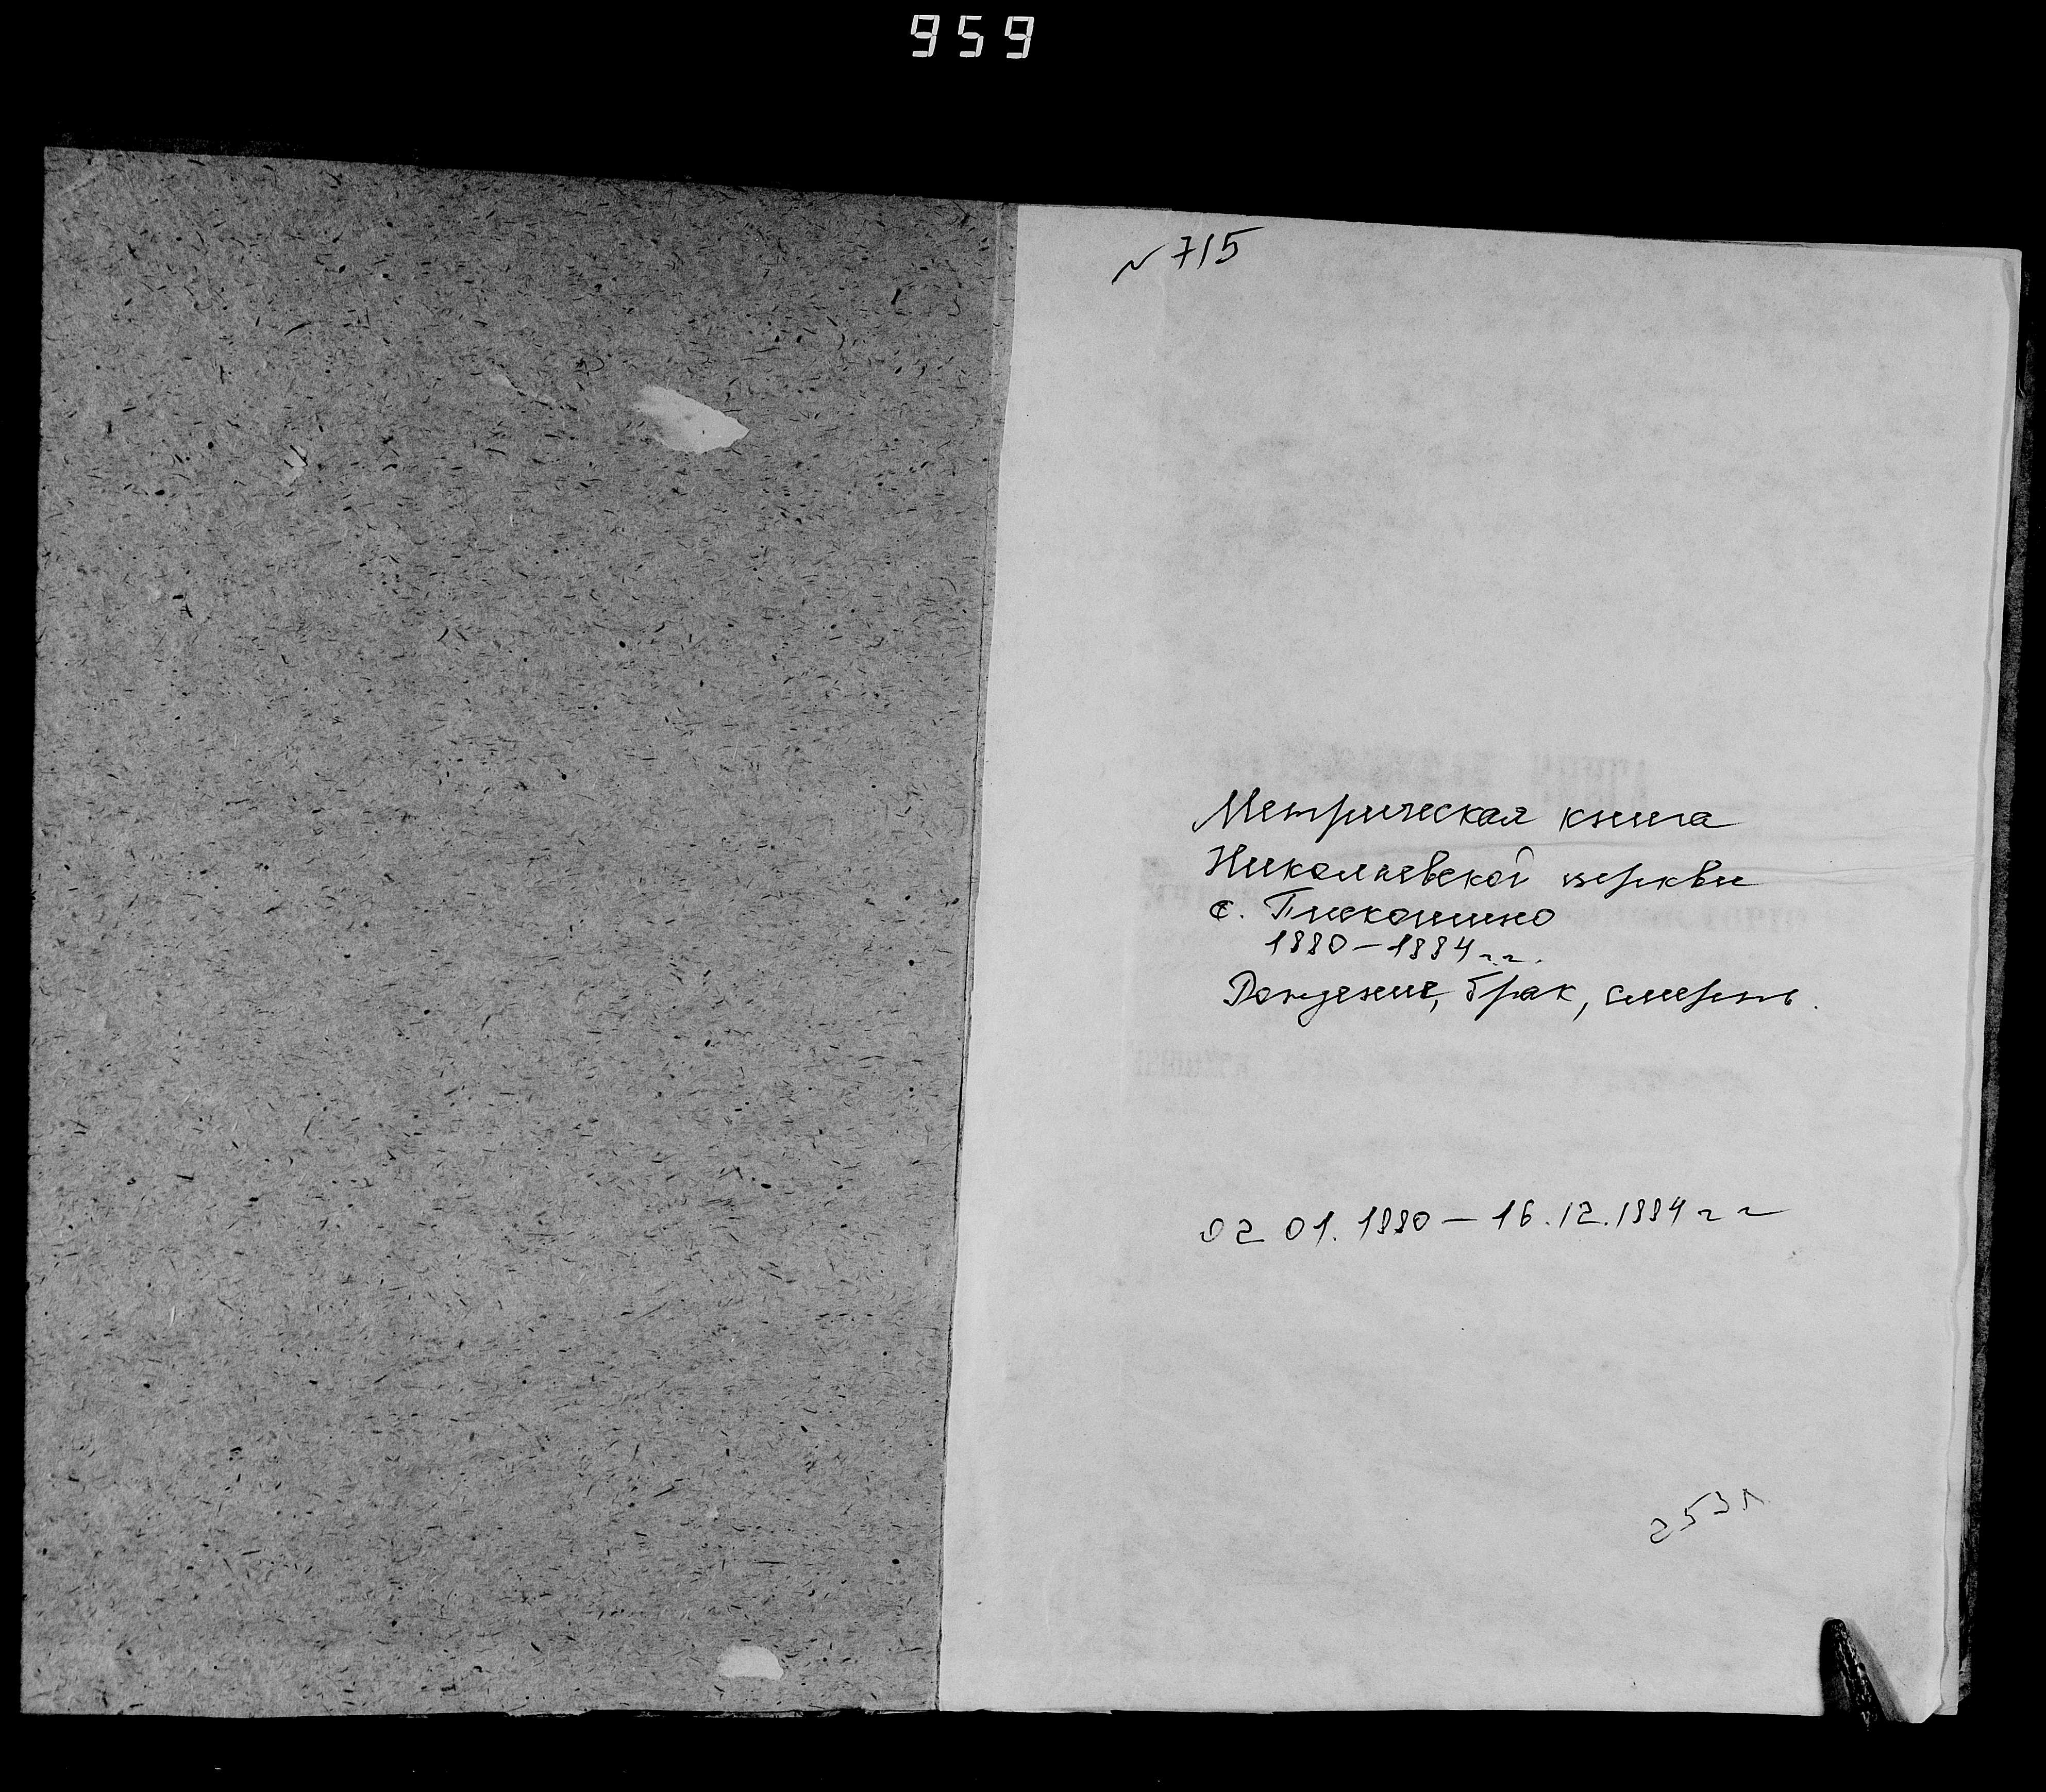 959
№ 715
Метрическая книга
Николаевской церкви
с.
1880-1884 г.г.
Рождение, брак, смерть.
02 01. 1880 - 16.12.1884 г г
253 л